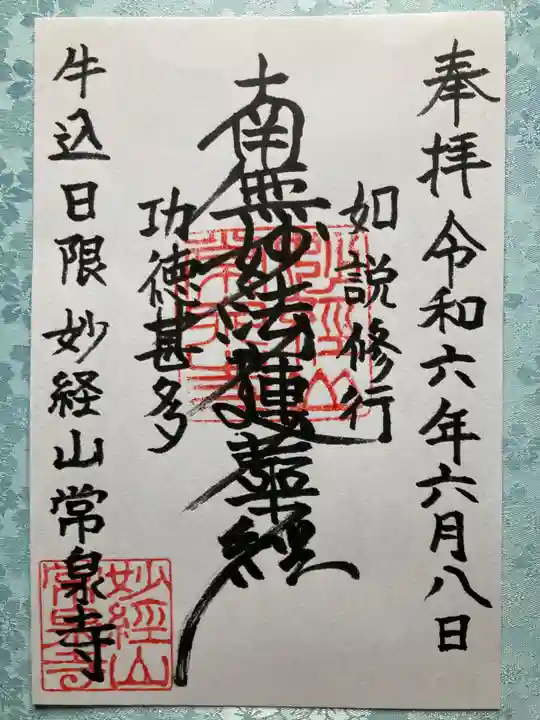 奉拝 令和六年六月八日
如説修行
南無妙法蓮華経
功徳甚多
牛込日限 妙経山常泉寺
妙經山
常泉寺
妙經山
常泉寺